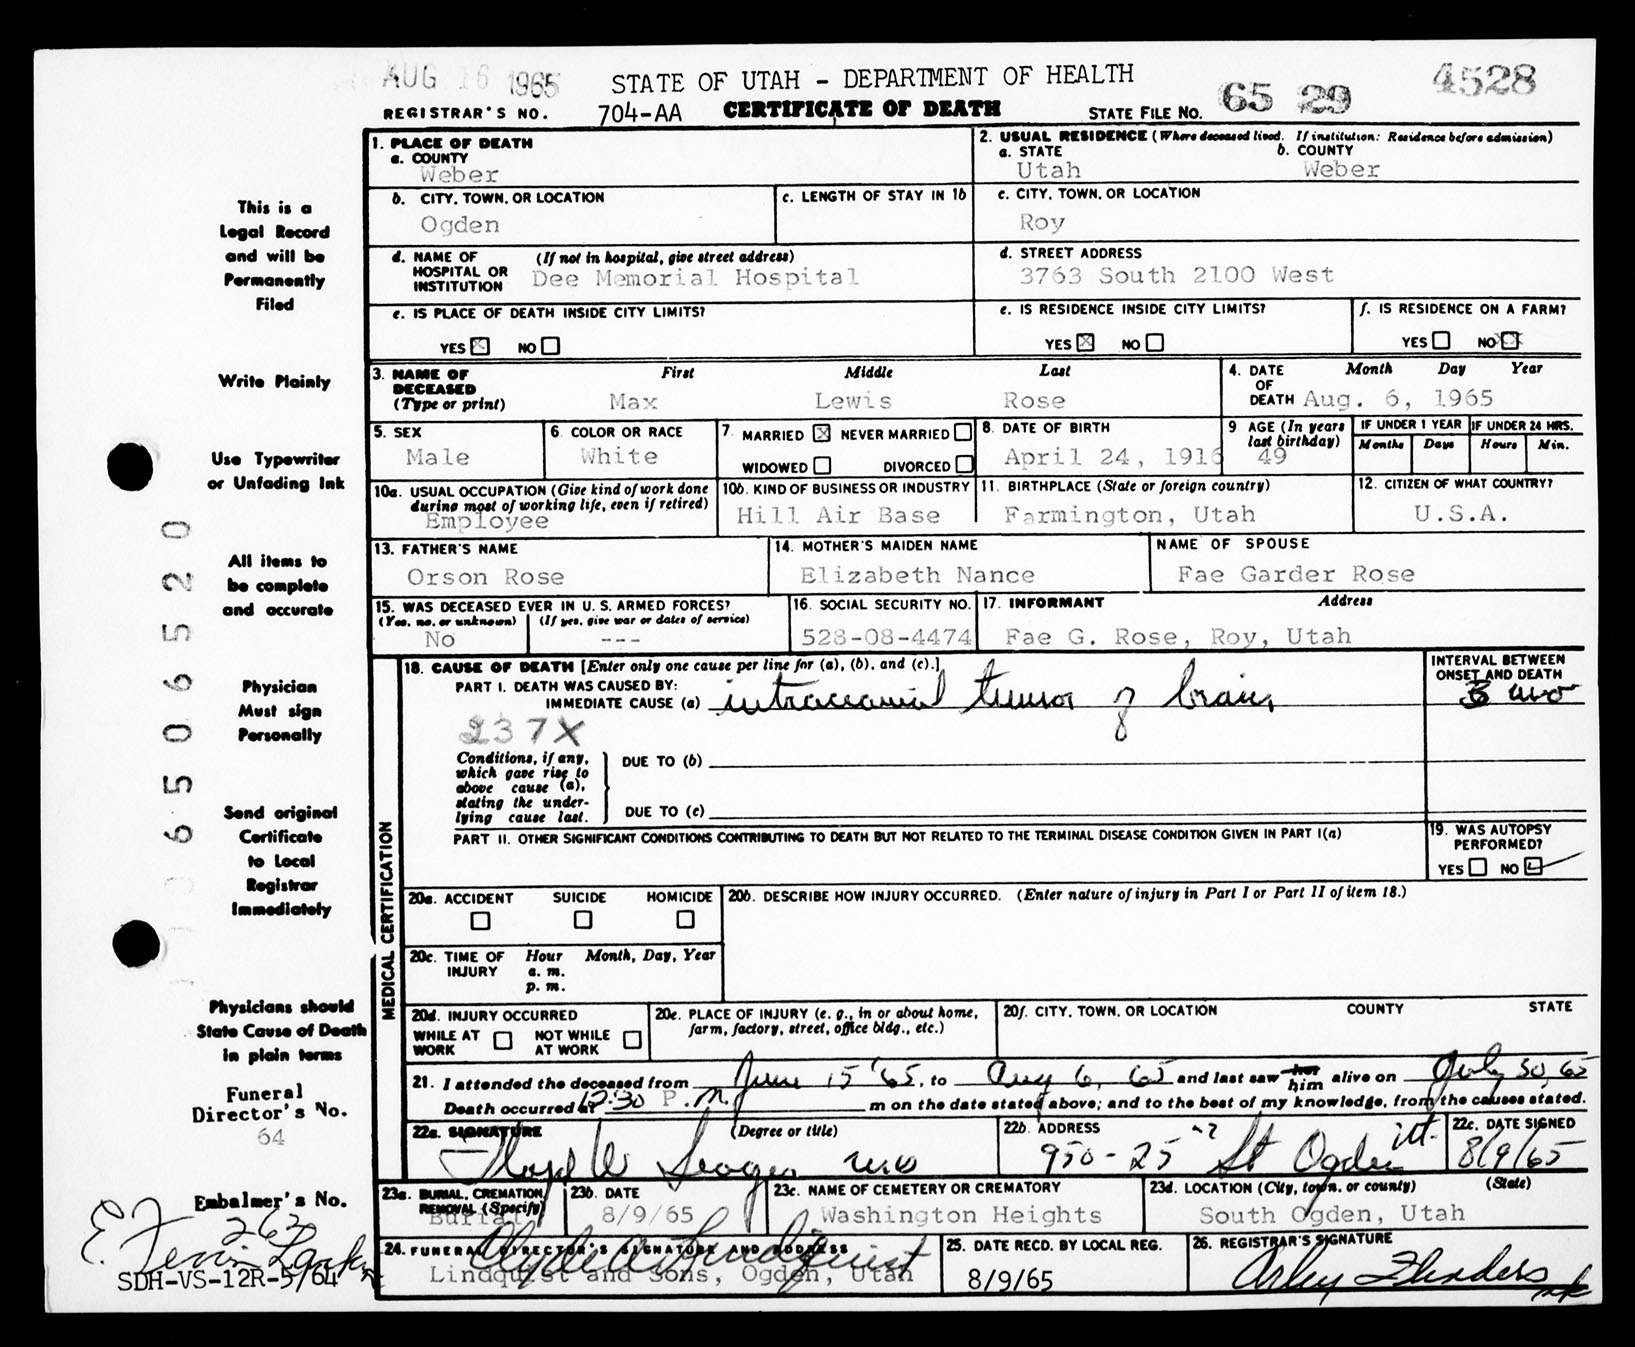 AUG 16 1965
STATE OF UTAH - DEPARTMENT OF HEALTH
65 29
4528
REGISTRAR'S NO. 704-AA
CERTIFICATE OF DEATH
STATE FILE NO.
1. PLACE OF DEATH
a. COUNTY
Weber
2. USUAL RESIDENCE (Where deceased lived. If institution: Residence before admission)
a. STATE
b. COUNTY
Utah
Weber
b. CITY, TOWN, OR LOCATION
Ogden
c. LENGTH OF STAY IN 1b
c. CITY, TOWN, OR LOCATION
Roy
d. NAME OF HOSPITAL OR INSTITUTION
(If not in hospital, give street address)
Dee Memorial Hospital
d. STREET ADDRESS
3763 South 2100 West
e. IS PLACE OF DEATH INSIDE CITY LIMITS?
YES NO
e. IS RESIDENCE INSIDE CITY LIMITS?
YES NO
f. IS RESIDENCE ON A FARM?
YES NO
3. NAME OF DECEASED
(Type or print)
First Middle Last
Max Lewis Rose
4. DATE OF DEATH
Month Day Year
Aug. 6, 1965
5. SEX
Male
6. COLOR OR RACE
White
7. MARRIED NEVER MARRIED
WIDOWED DIVORCED
8. DATE OF BIRTH
April 24, 1916
9 AGE (In years last birthday)
49
IF UNDER 1 YEAR
Months Days
IF UNDER 24 HRS.
Hours Min.
10a. USUAL OCCUPATION (Give kind of work done during most of working life, even if retired)
Employee
10b. KIND OF BUSINESS OR INDUSTRY
Hill Air Base
11. BIRTHPLACE (State or foreign country)
Farmington, Utah
12. CITIZEN OF WHAT COUNTRY?
U.S.A.
13. FATHER'S NAME
Orson Rose
14. MOTHER'S MAIDEN NAME
Elizabeth Nance
NAME OF SPOUSE
Fae Garder Rose
15. WAS DECEASED EVER IN U. S. ARMED FORCES?
(Yes, no, or unknown)
(If yes, give war or dates of service)
No
---
16. SOCIAL SECURITY NO.
528-08-4474
17. INFORMANT
Address
Fae G. Rose, Roy, Utah
MEDICAL CERTIFICATION
18. CAUSE OF DEATH [Enter only one cause per line for (a), (b), and (c).]
PART I. DEATH WAS CAUSED BY:
IMMEDIATE CAUSE (a) intracranial tumor of brain
INTERVAL BETWEEN ONSET AND DEATH
237X
Conditions, if any, which gave rise to above cause (a), stating the underlying cause last.
DUE TO (b)
DUE TO (c)
PART II. OTHER SIGNIFICANT CONDITIONS CONTRIBUTING TO DEATH BUT NOT RELATED TO THE TERMINAL DISEASE CONDITION GIVEN IN PART I(a)
19. WAS AUTOPSY PERFORMED?
YES NO
20a. ACCIDENT SUICIDE HOMICIDE
20b. DESCRIBE HOW INJURY OCCURRED. (Enter nature of injury in Part I or Part II of item 18.)
20c. TIME OF INJURY
Hour Month, Day, Year
a. m.
p. m.
20d. INJURY OCCURRED
WHILE AT WORK
NOT WHILE AT WORK
20e. PLACE OF INJURY (e. g., in or about home, farm, factory, street, office bldg., etc.)
20f. CITY, TOWN, OR LOCATION COUNTY STATE
21. I attended the deceased from June 15 '65, to Aug 6, 65 and last saw her him alive on July 30, 65
Death occurred at 12:30 P.M. m on the date stated above; and to the best of my knowledge, from the causes stated.
22a. SIGNATURE
(Degree or title)
22b. ADDRESS
950-25 St Ogden Ut.
22c. DATE SIGNED
8/9/65
23a. BURIAL, CREMATION, REMOVAL (Specify)
Burial
23b. DATE
8/9/65
23c. NAME OF CEMETERY OR CREMATORY
Washington Heights
23d. LOCATION (City, town, or county) (State)
South Ogden, Utah
24. FUNERAL DIRECTOR'S SIGNATURE AND ADDRESS
Clyde A Lindquist
Lindquist and Sons, Ogden, Utah
25. DATE RECD. BY LOCAL REG.
8/9/65
26. REGISTRAR'S SIGNATURE
Arley Flinders
This is a
Legal Record
and will be
Permanently
Filed
Write Plainly
Use Typewriter
or Unfading Ink
All items to
be complete
and accurate
Physician
Must sign
Personally
Send original
Certificate
to Local
Registrar
Immediately
Physicians should
State Cause of Death
in plain terms
Funeral
Director's No.
64
Embalmer's No.
262
SDH-VS-12R-5/64
6506520